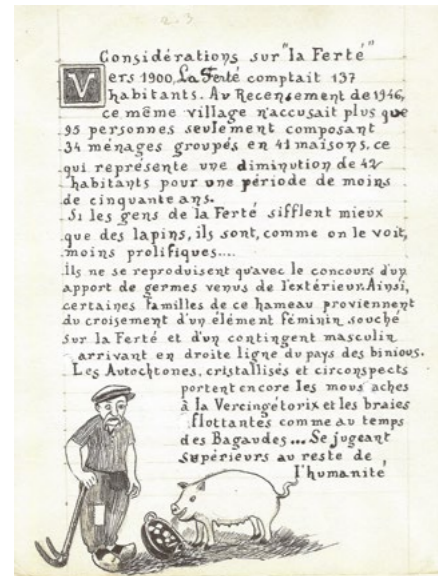 2.3
Considérations sur "la Ferté"
Vers 1900, La Ferté comptait 137
habitants. Au Recensement de 1946,
ce même village n'accusait plus que
95 personnes seulement composant
34 ménages groupés en 41 maisons, ce
qui représente une diminution de 42
habitants pour une période de moins
de cinquante ans.
Si les gens de la Ferté sifflent mieux
que des lapins, ils sont, comme on le voit,
moins prolifiques....
ils ne se reproduisent qu'avec le concours d'un
apport de germes venus de l'extérieur. Ainsi,
certaines familles de ce hameau proviennent
du croisement d'un élément féminin souché
sur la Ferté et d'un contingent masculin
arrivant en droite ligne du pays des binious.
Les Autochtones, cristallisés et circonspects
portent encore les mous aches
à la Vercingétorix et les braies
flottantes comme au temps
des Bagaudes... Se jugeant
supérieurs au reste de
l'humanité